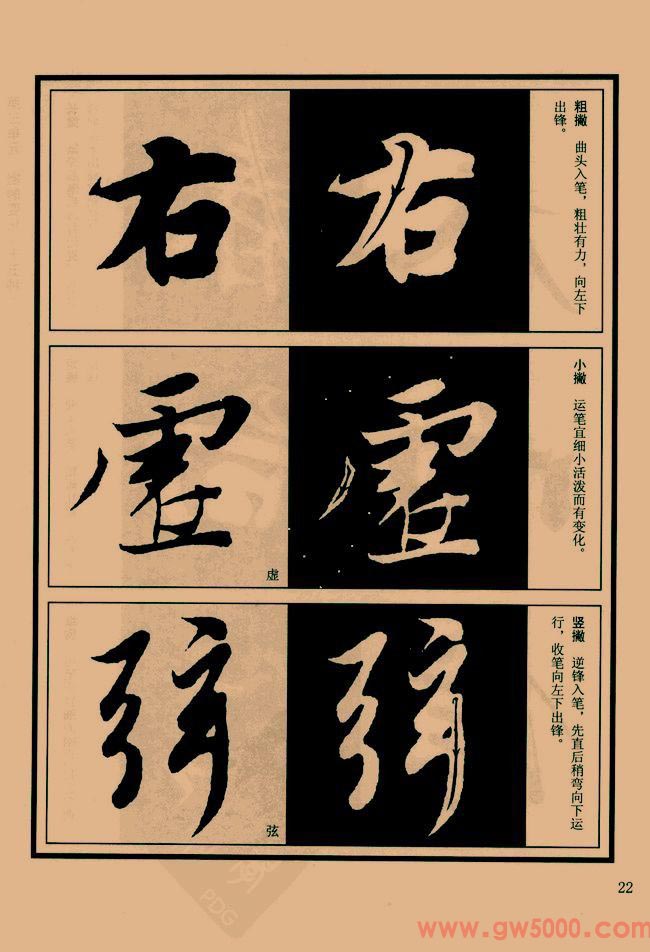 右
粗撇　曲头入笔，粗壮有力，向左下
出锋。
虚
小撇　运笔宜细小活泼而有变化。
弦
竖撇　逆锋入笔，先直后稍弯向下运
行，收笔向左下出锋。
22
www.gw5000.com
PDG